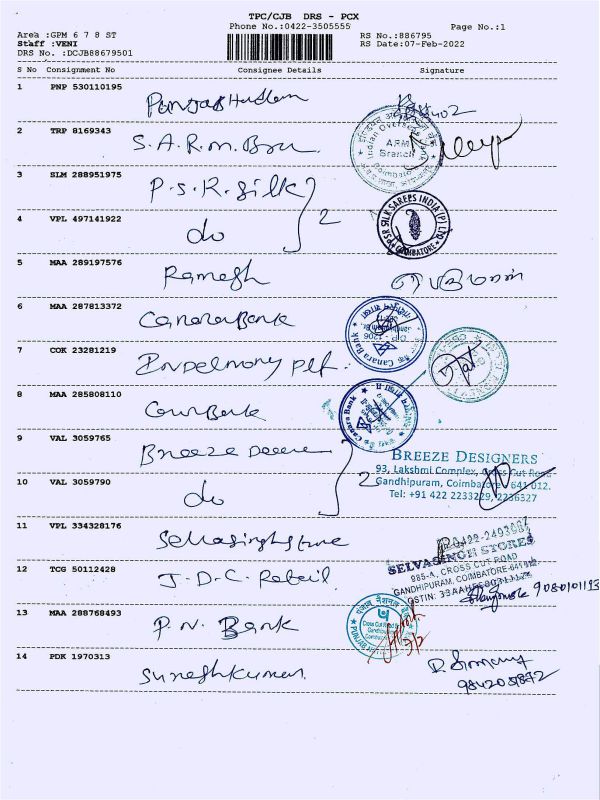 TPC/CJB DRS - PCX
Phone No.:0422-3505555
Page No.:1
Area :GPM 6 7 8 ST
RS No.:886795
Staff :VENI
RS Date:07-Feb-2022
DRS No. :DCJB88679501
S No Consignment No Consignee Details Signature
1 PNP 530110195
2 TRP 8169343 S.A.R.M.
Indian Overseas Bank
ARM
Branch
3 SLM 288951975 P.S.R. Silk
2
PSR SILK SAREES INDIA (P) LTD.
COIMBATORE
4 VPL 497141922 do
5 MAA 289197576 Ramesh
6 MAA 287813372 Canara Bank
Canara Bank
7 COK 23281219
8 MAA 285808110
Canara Bank
9 VAL 3059765 Breeze
2
BREEZE DESIGNERS
93, Lakshmi Complex, Cross Cut Road
Gandhipuram, Coimbatore - 641 012.
Tel: +91 422 2233229, 2236327
10 VAL 3059790 do
11 VPL 334328176 Selvasingh Store
0422-2493087
SELVASINGH STORES
985-A, CROSS CUT ROAD
GANDHIPURAM, COIMBATORE-641012
GSTIN:
12 TCG 50112428 J.D.C. Retail
13 MAA 288768493 P.N. Bank
Cross Cut Road
14 PDK 1970313 Sureshkumar